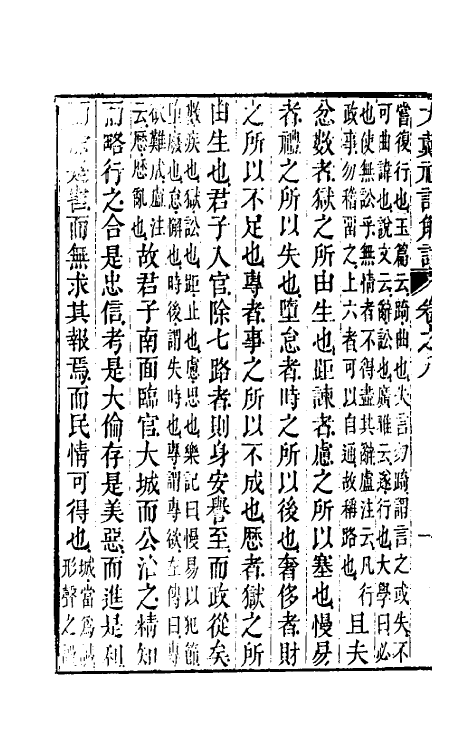 大戴禮記解詁 卷之八 一
嘗復行也玉篇云踦曲也失言勿踦謂言之或失不
可曲諱也說文云辭訟也廣雅云遂行也大學曰必
也使無訟乎無情者不得盡其辭盧注云凡行
政事勿稽留之上六者可以自通故稱路也且夫
忿數者獄之所由生也距諫者慮之所以塞也慢易
者禮之所以失也墮怠者時之所以後也奢侈者財
之所以不足也專者事之所以不成也歷者獄之所
由生也君子入官除七路者則身安譽至而政從矣
數疾也獄訟也距止也慮思也樂記曰慢易以犯節
廢也怠懈也時後謂失時也專謂專欲左傳曰專
欲難成盧注
云歷歷亂也故君子南面臨官大城而公治之精知
而略行之合是忠信考是大倫存是美惡而進是利
而無求其報焉而民情可得也城當為誠
形聲之